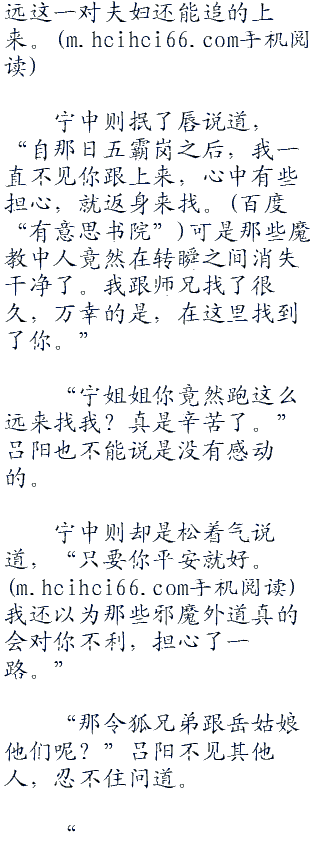 远这一对夫妇还能追的上
来。(m.hcihci66.com手机阅
读)
宁中则抿了唇说道，
“自那日五霸岗之后，我一
直不见你跟上来，心中有些
担心，就返身来找。(百度
“有意思书院”)可是那些魔
教中人竟然在转瞬之间消失
干净了。我跟师兄找了很
久，万幸的是，在这里找到
了你。”
“宁姐姐你竟然跑这么
远来找我？真是辛苦了。”
吕阳也不能说是没有感动
的。
宁中则却是松着气说
道，“只要你平安就好。
(m.hcihci66.com手机阅读)
我还以为那些邪魔外道真的
会对你不利，担心了一
路。”
“那令狐兄弟跟岳姑娘
他们呢？”吕阳不见其他
人，忍不住问道。
“